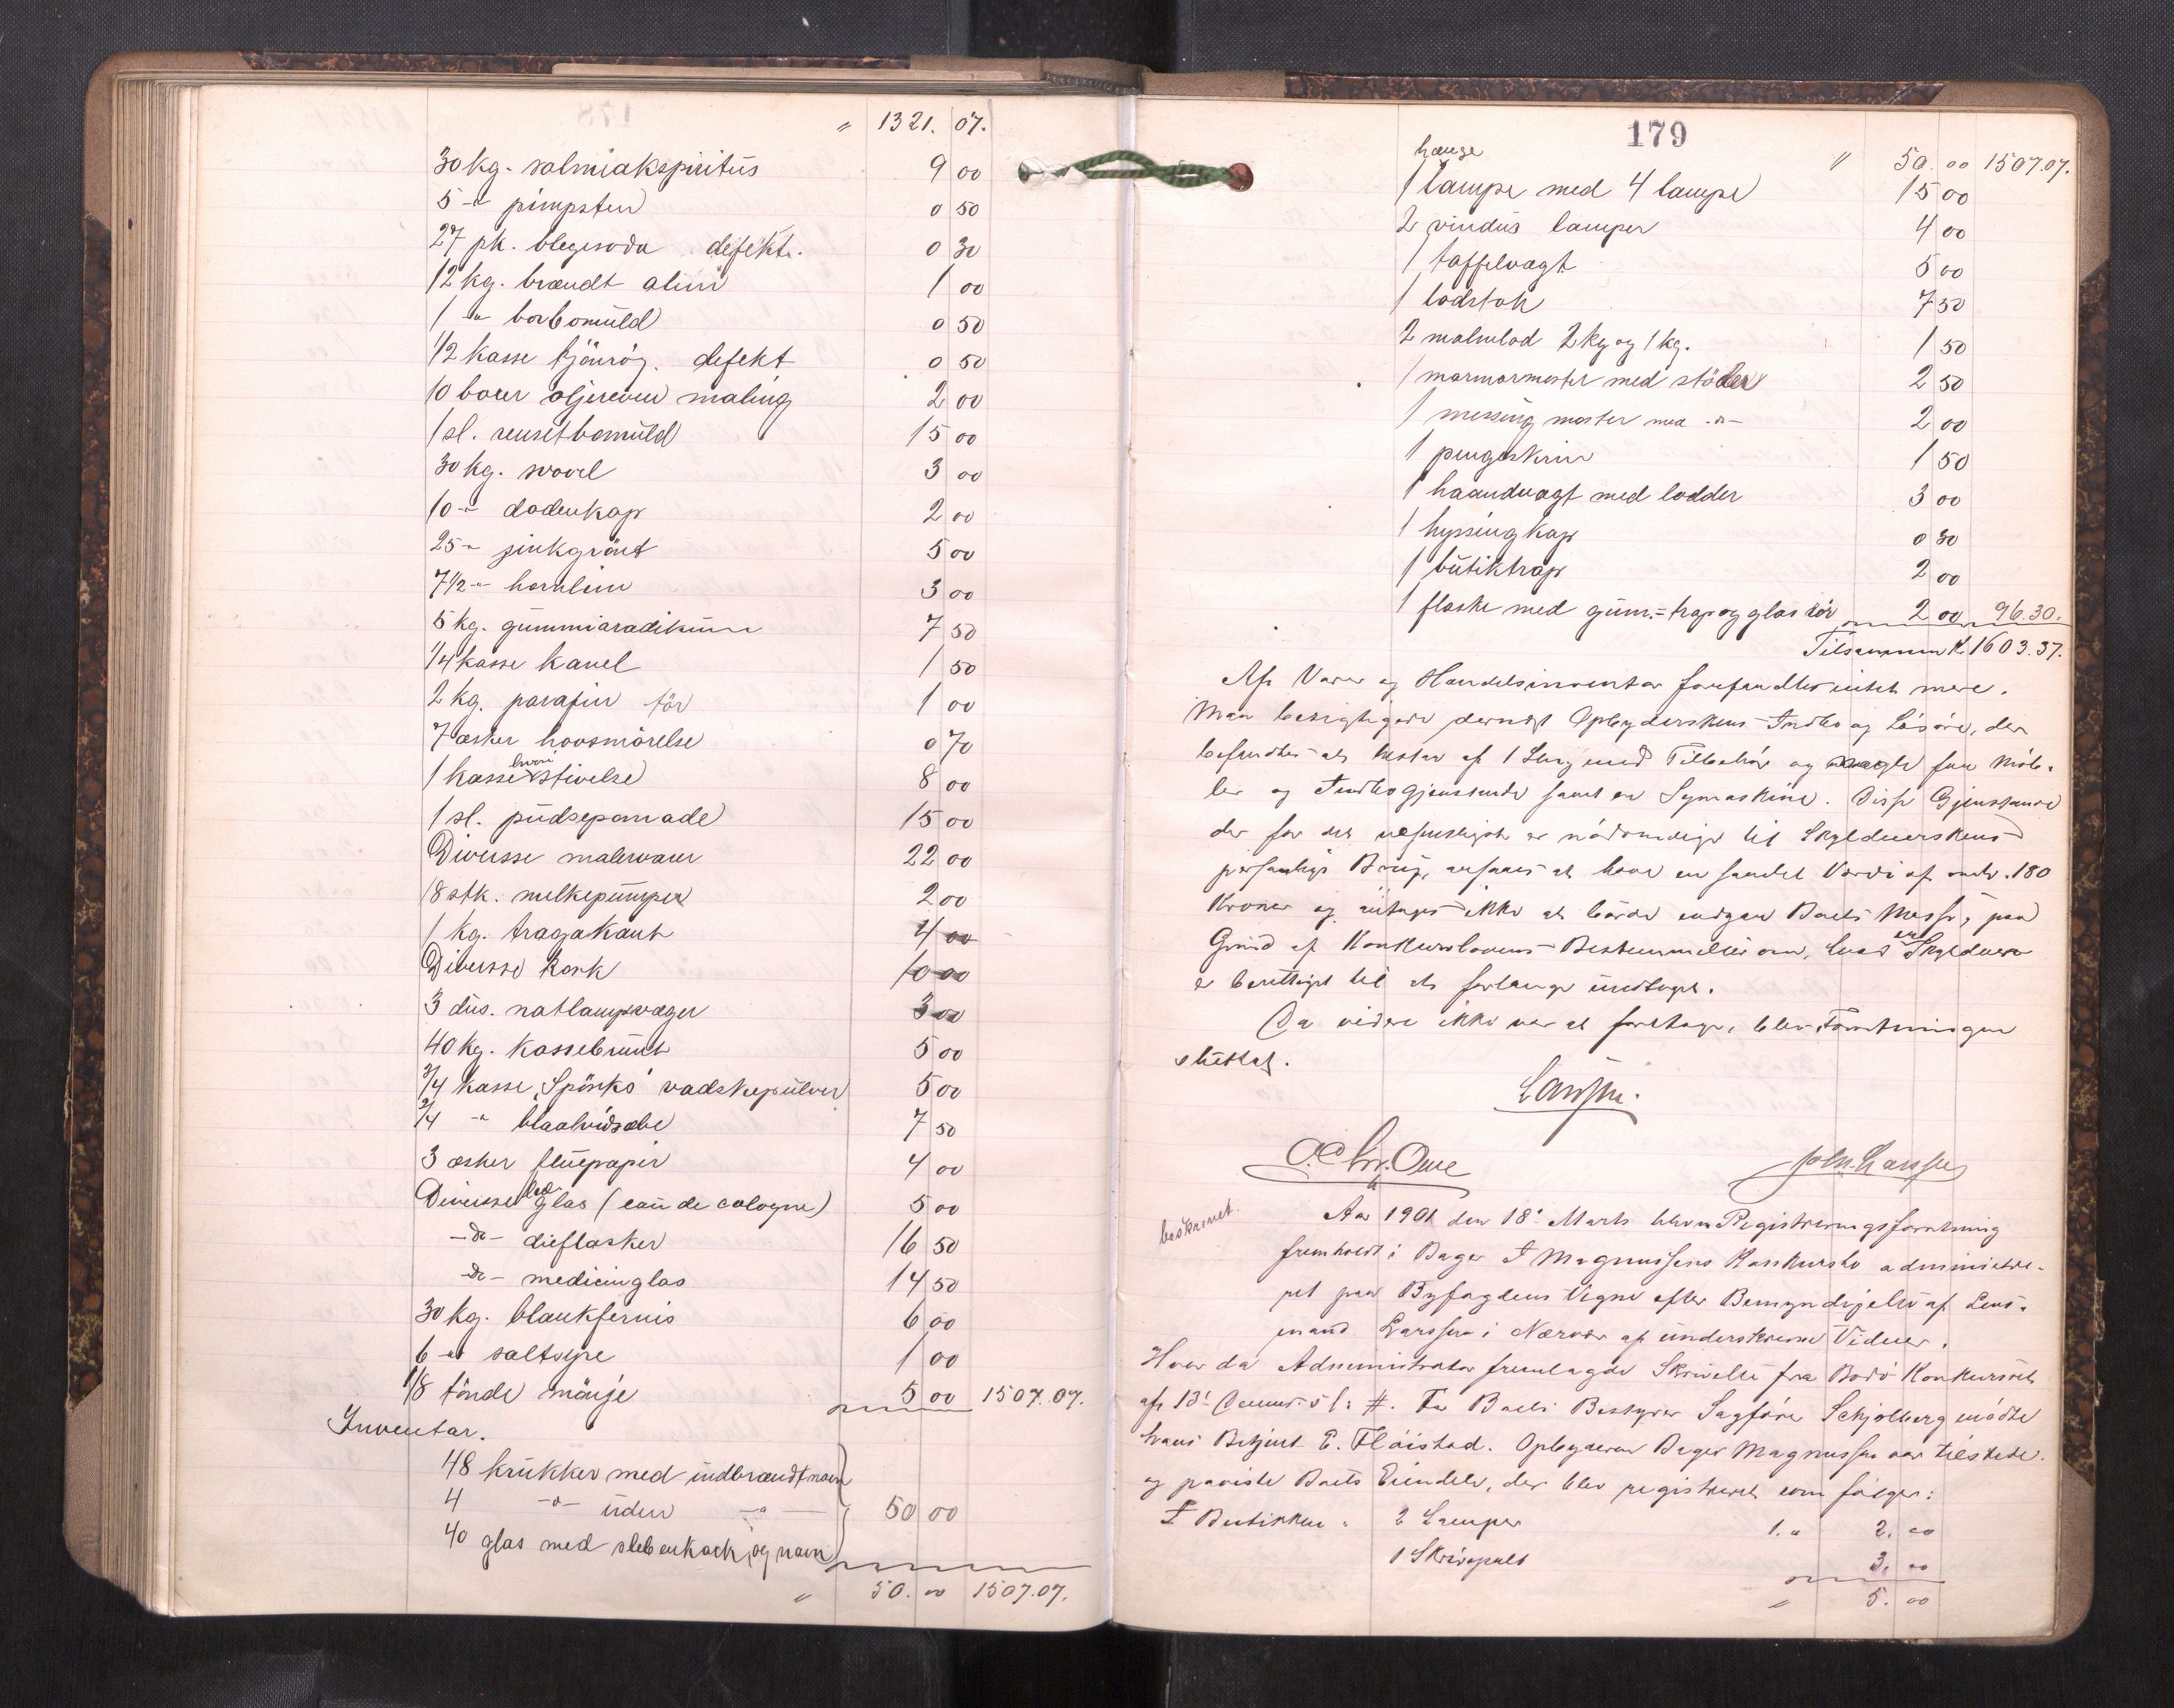 " 1321. 07.
30 kg. salmiakspiritus 9 00
5 -"- pimpsten 0 50
27 pk. blegesoda defekt. 0 30
12 kg. brændt alun 1 00
1 -"- borbomuld 0 50
1/2 kasse kjönrög. defekt 0 50
10 boxer oljereven maling 2 00
1 sl. renset bomuld 15 00
30 kg. svovel 3 00
10 -"- dodenkop 2 00
25 -"- zinkgrönt 5 00
7 1/2 -"- hornlim 3 00
5 kg. gummiaradikum 7 50
1/4 kasse kanel 1 50
2 kg. parafin tör 1 00
7 æsker hovsmörelse 0 70
1 kasse stivelse 8 00
1 sl. pudsepomade 15 00
Diversse malervarer 22 00
18 stk. melkepumper 2 00
1 kg. tragakant 4 00
Diversse kork 10 00
3 dus. natlampevæger 3 00
40 kg. Kasselbrunt 5 00
3/4 kasse "Spörks" vadskepulver 5 00
3/4 -"- blaahvidsæbe 7 50
3 æsker fluepapir 4 00
Diversse glas (eau de cologne) 5 00
-do- dieflasker 16 50
-do- medicinglas 14 50
30 kg. blankfernis 6 00
6 -"- saltsyre 1 00
1/8 tönde mönje 5 00 1507.07.
Inventar.
48 krukker med indbrændt navn
4 -"- uden -"- 50 00
40 glas med slebenkork og navn
" 50. 00 1507.07.
179
" 50. 00 1507.07.
hænge
1 lampe med 4 lampe 15 00
2 vindus lamper 4 00
1 taffelvægt 5 00
1 lodstok 7 50
2 malmlod 2 kg og 1 kg. 1 50
1 marmormorter med stöder 2 50
1 messing morter med -"- 2 00
1 pengeskrin 1 50
1 haandvægt med lodder 3 00
1 hyssingkop 0 30
1 butiktrap 2 00
1 flaske med gum.=trap og glas rör 2 00 96.30.
Tilsammen K. 1603.37.
Af Varer og Handelsinventar forefandtes intet mere.
Man besigtigede dernæst Opbyderskens Indbo og Lösöre, der
befandtes at bestaa af 1 Seng med Tilbehör og nogle faa Möb-
ler og Indbogjenstande samt en Symaskine. Disse Gjenstande
der for det væsentligste er nödvendige til Skyldnerskens
personlige Brug, ansaaes at have en samlet Værdi af under 180
Kroner og antages ikke at burde indgaa Boets Masse, paa
Grund af Konkurslovens Bestemmelser om, hvad en Skyldner
er berettiget til at forlange undtaget.
Da videre ikke var at foretage, blev Forretningen
sluttet.
Larssen.
O. Chr. Owe Joh. Larssen
beskrevet.
Aar 1901 den 18' Marts blev en Registreringsforretning
fremholdt i Bager J Magnussens Konkursbo administre-
ret paa Byfogdens Vegne efter Bemyndigelse af Lens-
mand Larssen i Nærvær af underskrevne Vidner.
Hvor da Administrator fremlagde Skrivelse fra Bodö Konkursret
af 13' Dennes s l: #. For Boets Bestyrer Sagförer Schjolberg mödte
hans Betjent E. Flöistad. Opbyderen Bager Magnussen var tilstede
og paaviste Boets Eiendele, der blev registreret som fölger:
I Butikken: 2 Lamper 1. " 2. 00
1 Skrivepult 3. 00
" 5. 00